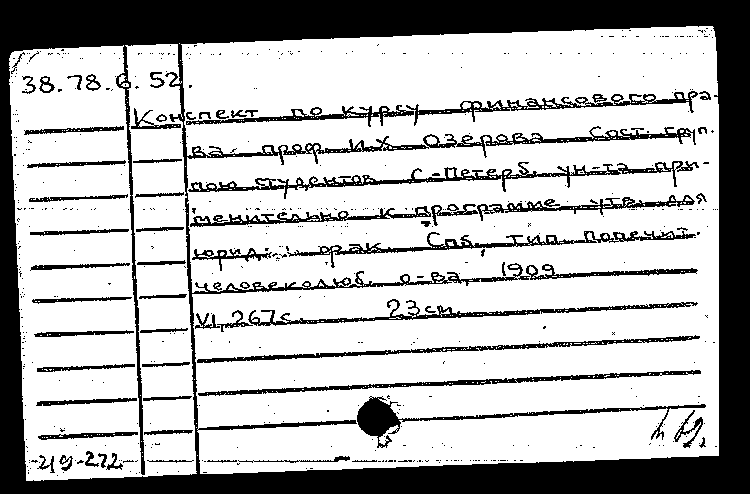 38.78.6.52.
Конспект по курсу финансового пра-
ва проф. И.Х Озерова Сост. груп-
пою студентов С-Петерб. ун-та при-
менительно к программе, утв. для
юрид. фак. Спб, тип. Попечит.
человеколюб. о-ва, 1909
VI, 267с. 23см.
219-272